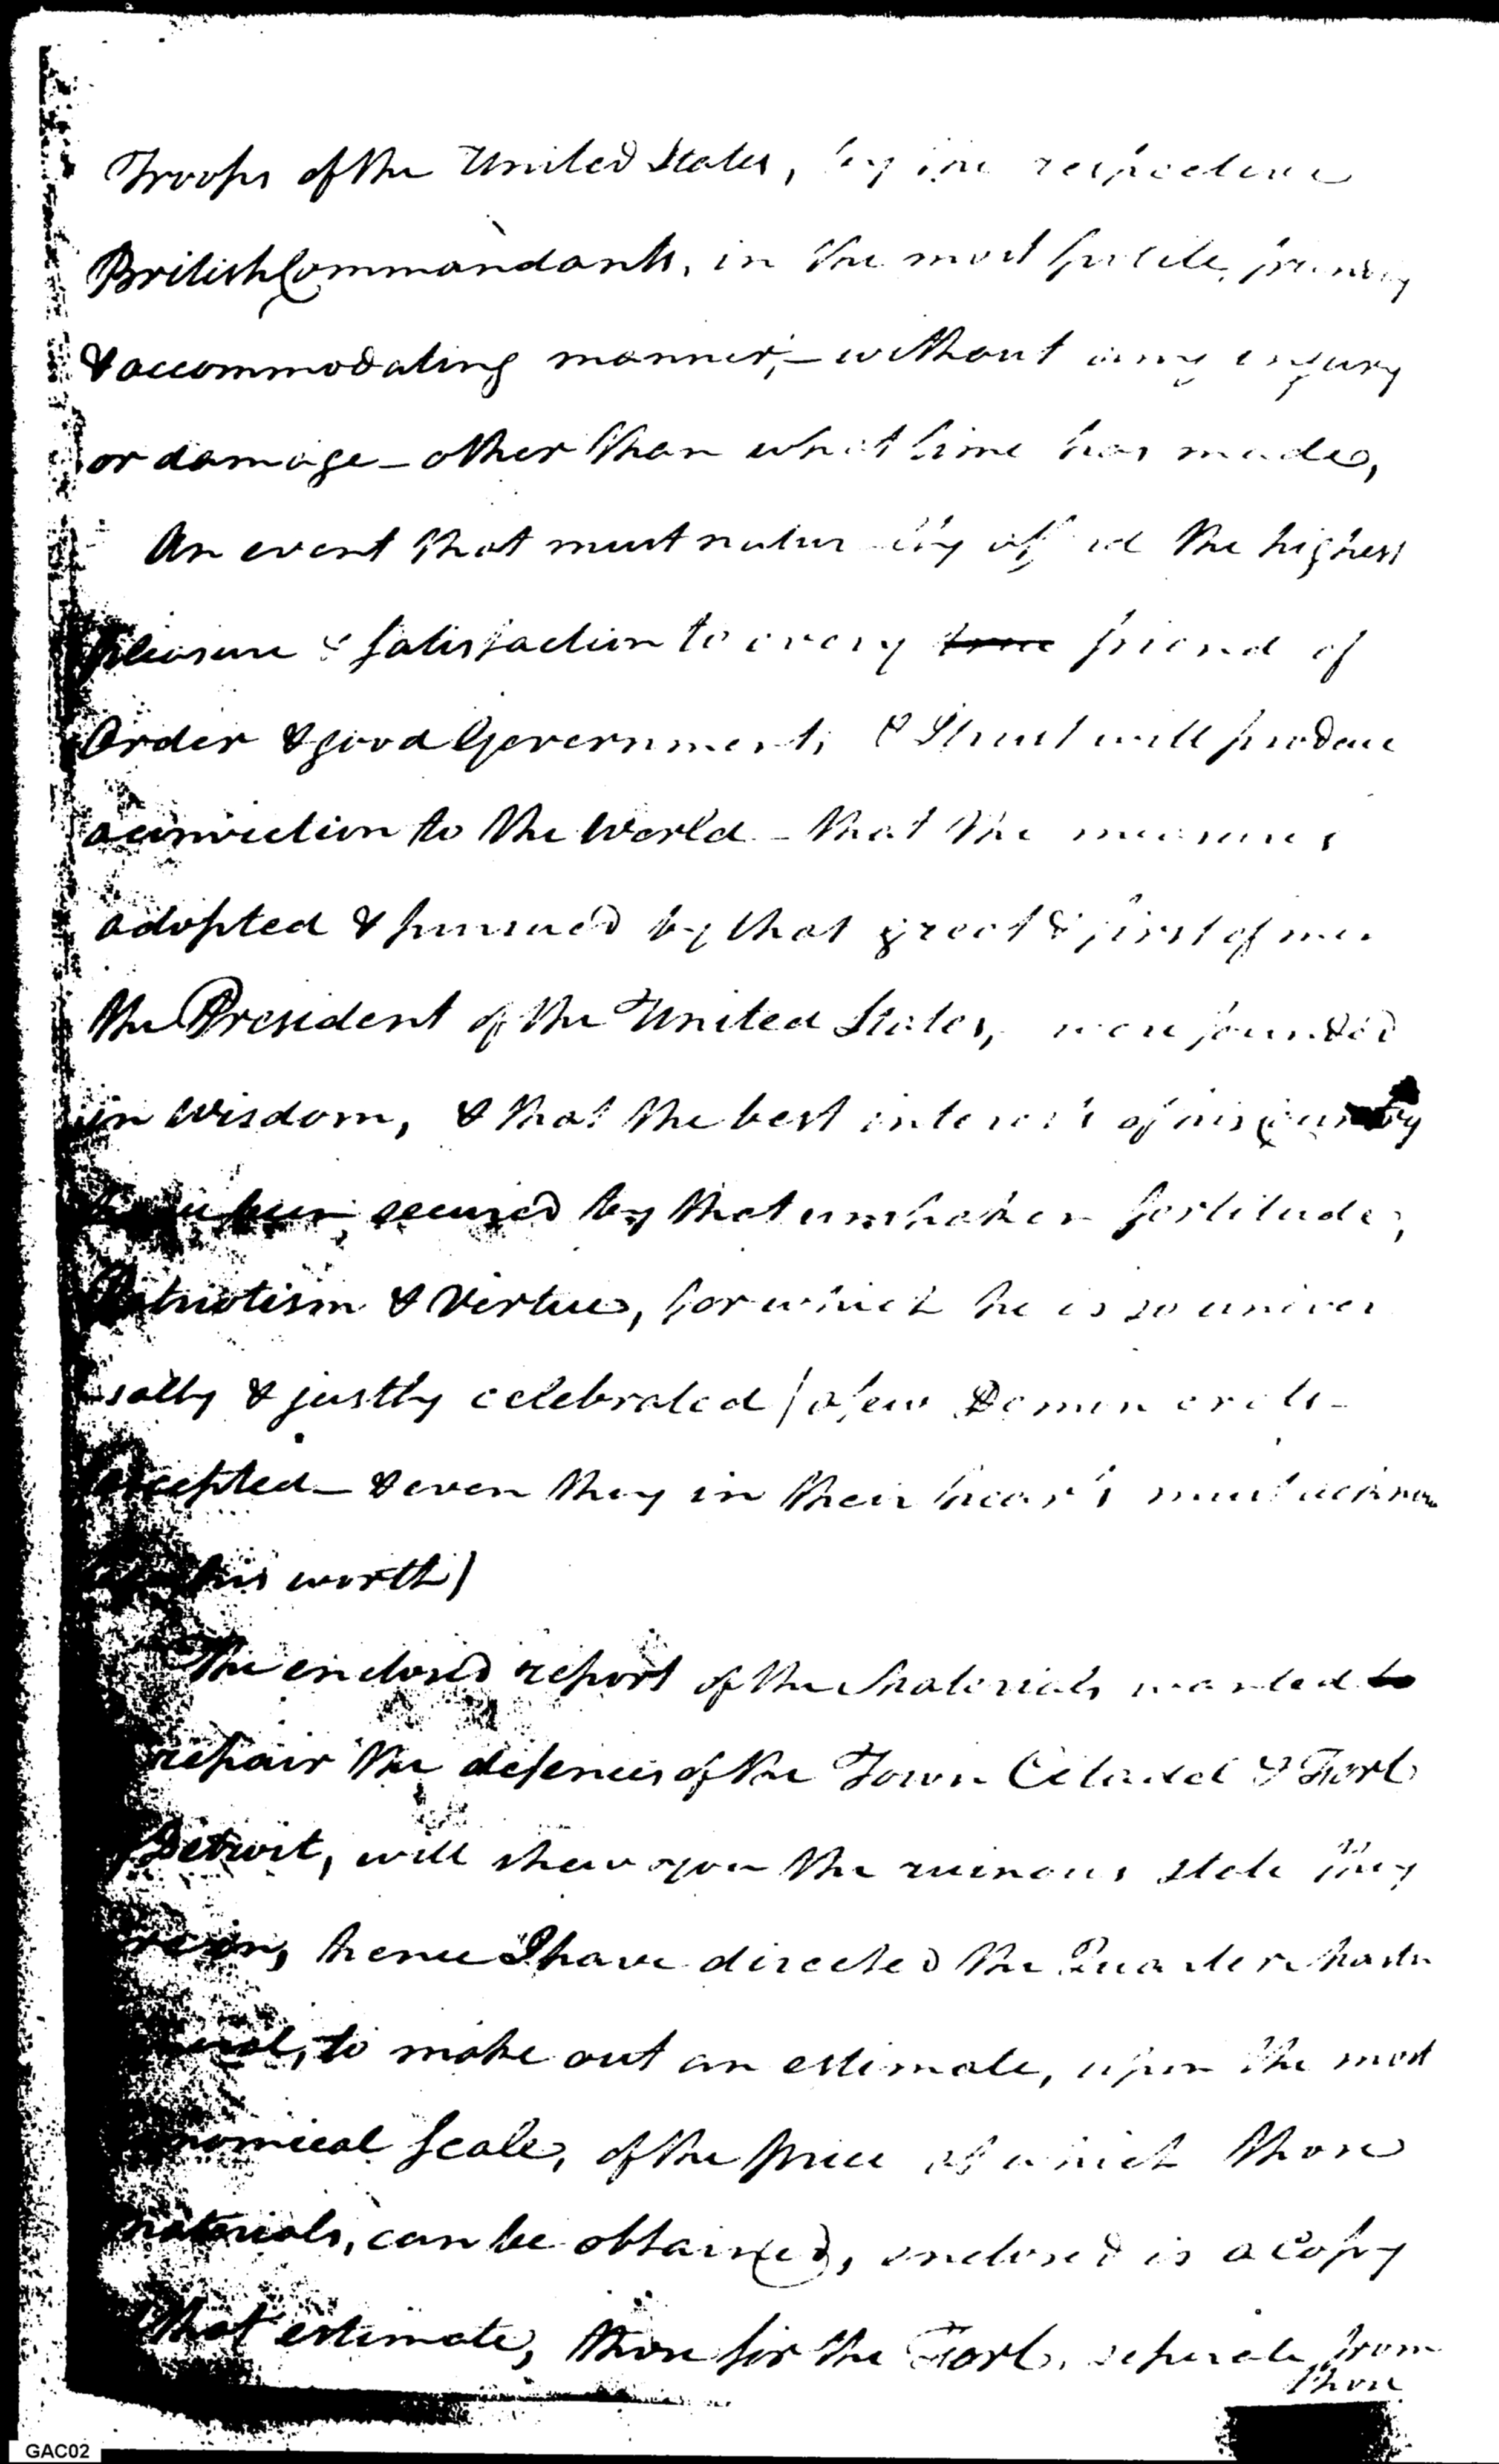 Troops of the United States, by the respective
British Commandants, in the most polite, friendly
& accommodating manner,- without any injury
or damage - other than what time has made,
An event that must naturally afford the highest
pleasure & satisfaction to every true friend of
Order & good Government, & I trust will produce
a conviction to the World - that the measures
adopted & pursued by that great & first of men
the President of the United States, were founded
in Wisdom, & that the best interests of his country
have been secured by that unshaken fortitude,
Patriotism & Virtue, for which he is so univer
sally & justly celebrated / a few Demoncrats -
excepted - & even they in their hearts must acknow
his worth /
The enclosed report of the Materials wanted to
repair the defences of the Town Citadel & Fort
Detroit, will shew you the ruinous state they
are in, hence I have directed the Quarter Master
General, to make out an estimate, upon the most
economical Scale, of the price at which those
Materials, can be obtained, enclosed is a Copy
that estimate, those for the Fort, seperate from
those
GAC02